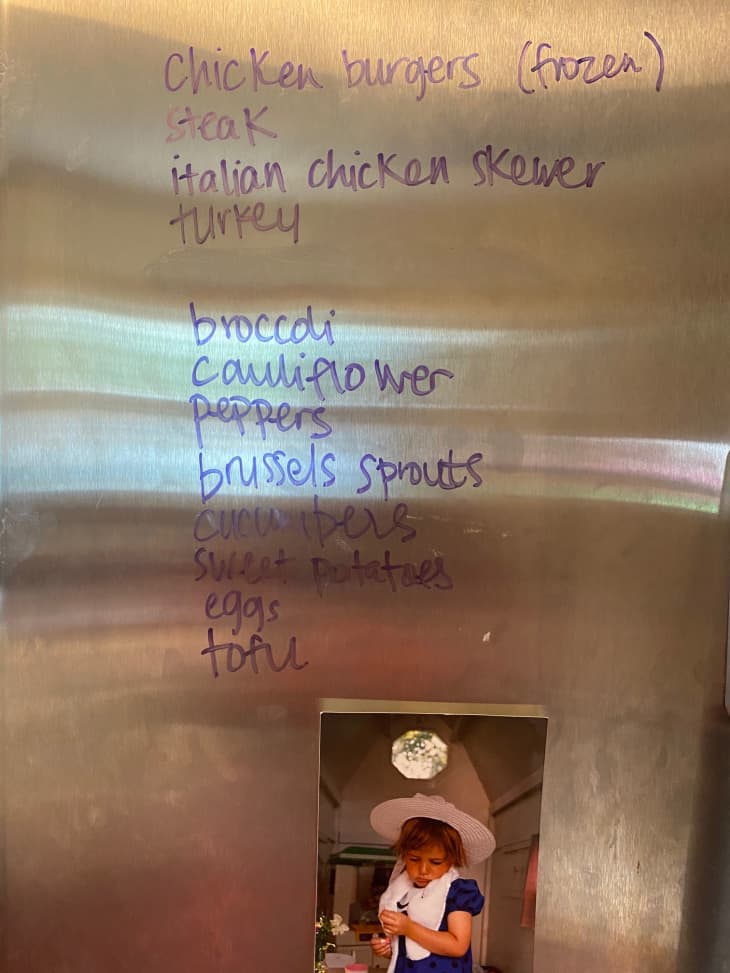 chicken burgers (frozen)
steak
italian chicken skewer
turkey
broccoli
cauliflower
peppers
brussels sprouts
cucumbers
sweet potatoes
eggs
tofu